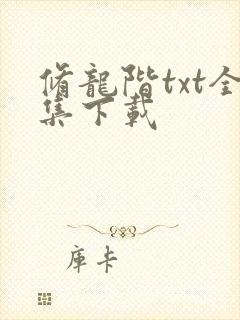 脩龍階txt全
集下載
庫卡